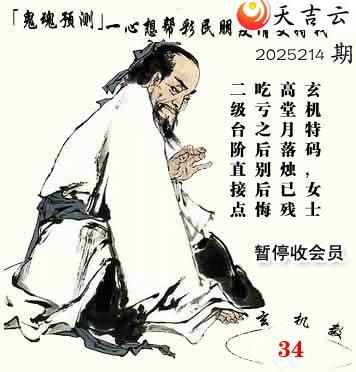 天吉云
「鬼魂预测」一心想帮彩民朋
2025214 期
玄机特码，女士
高堂月落烛已残
吃亏之后别后悔
二级台阶直接点
暂停收会员
玄机
34